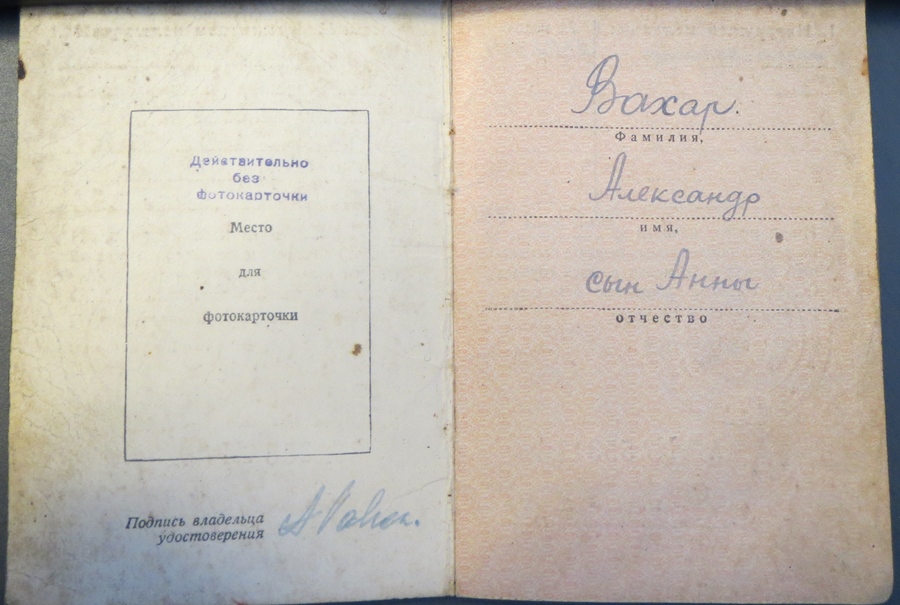 Действительно
без
фотокарточки
Место
для
фотокарточки
Подпись владельца
удостоверения
Вахар.
Фамилия,
Александр
имя,
сын Анны
отчество